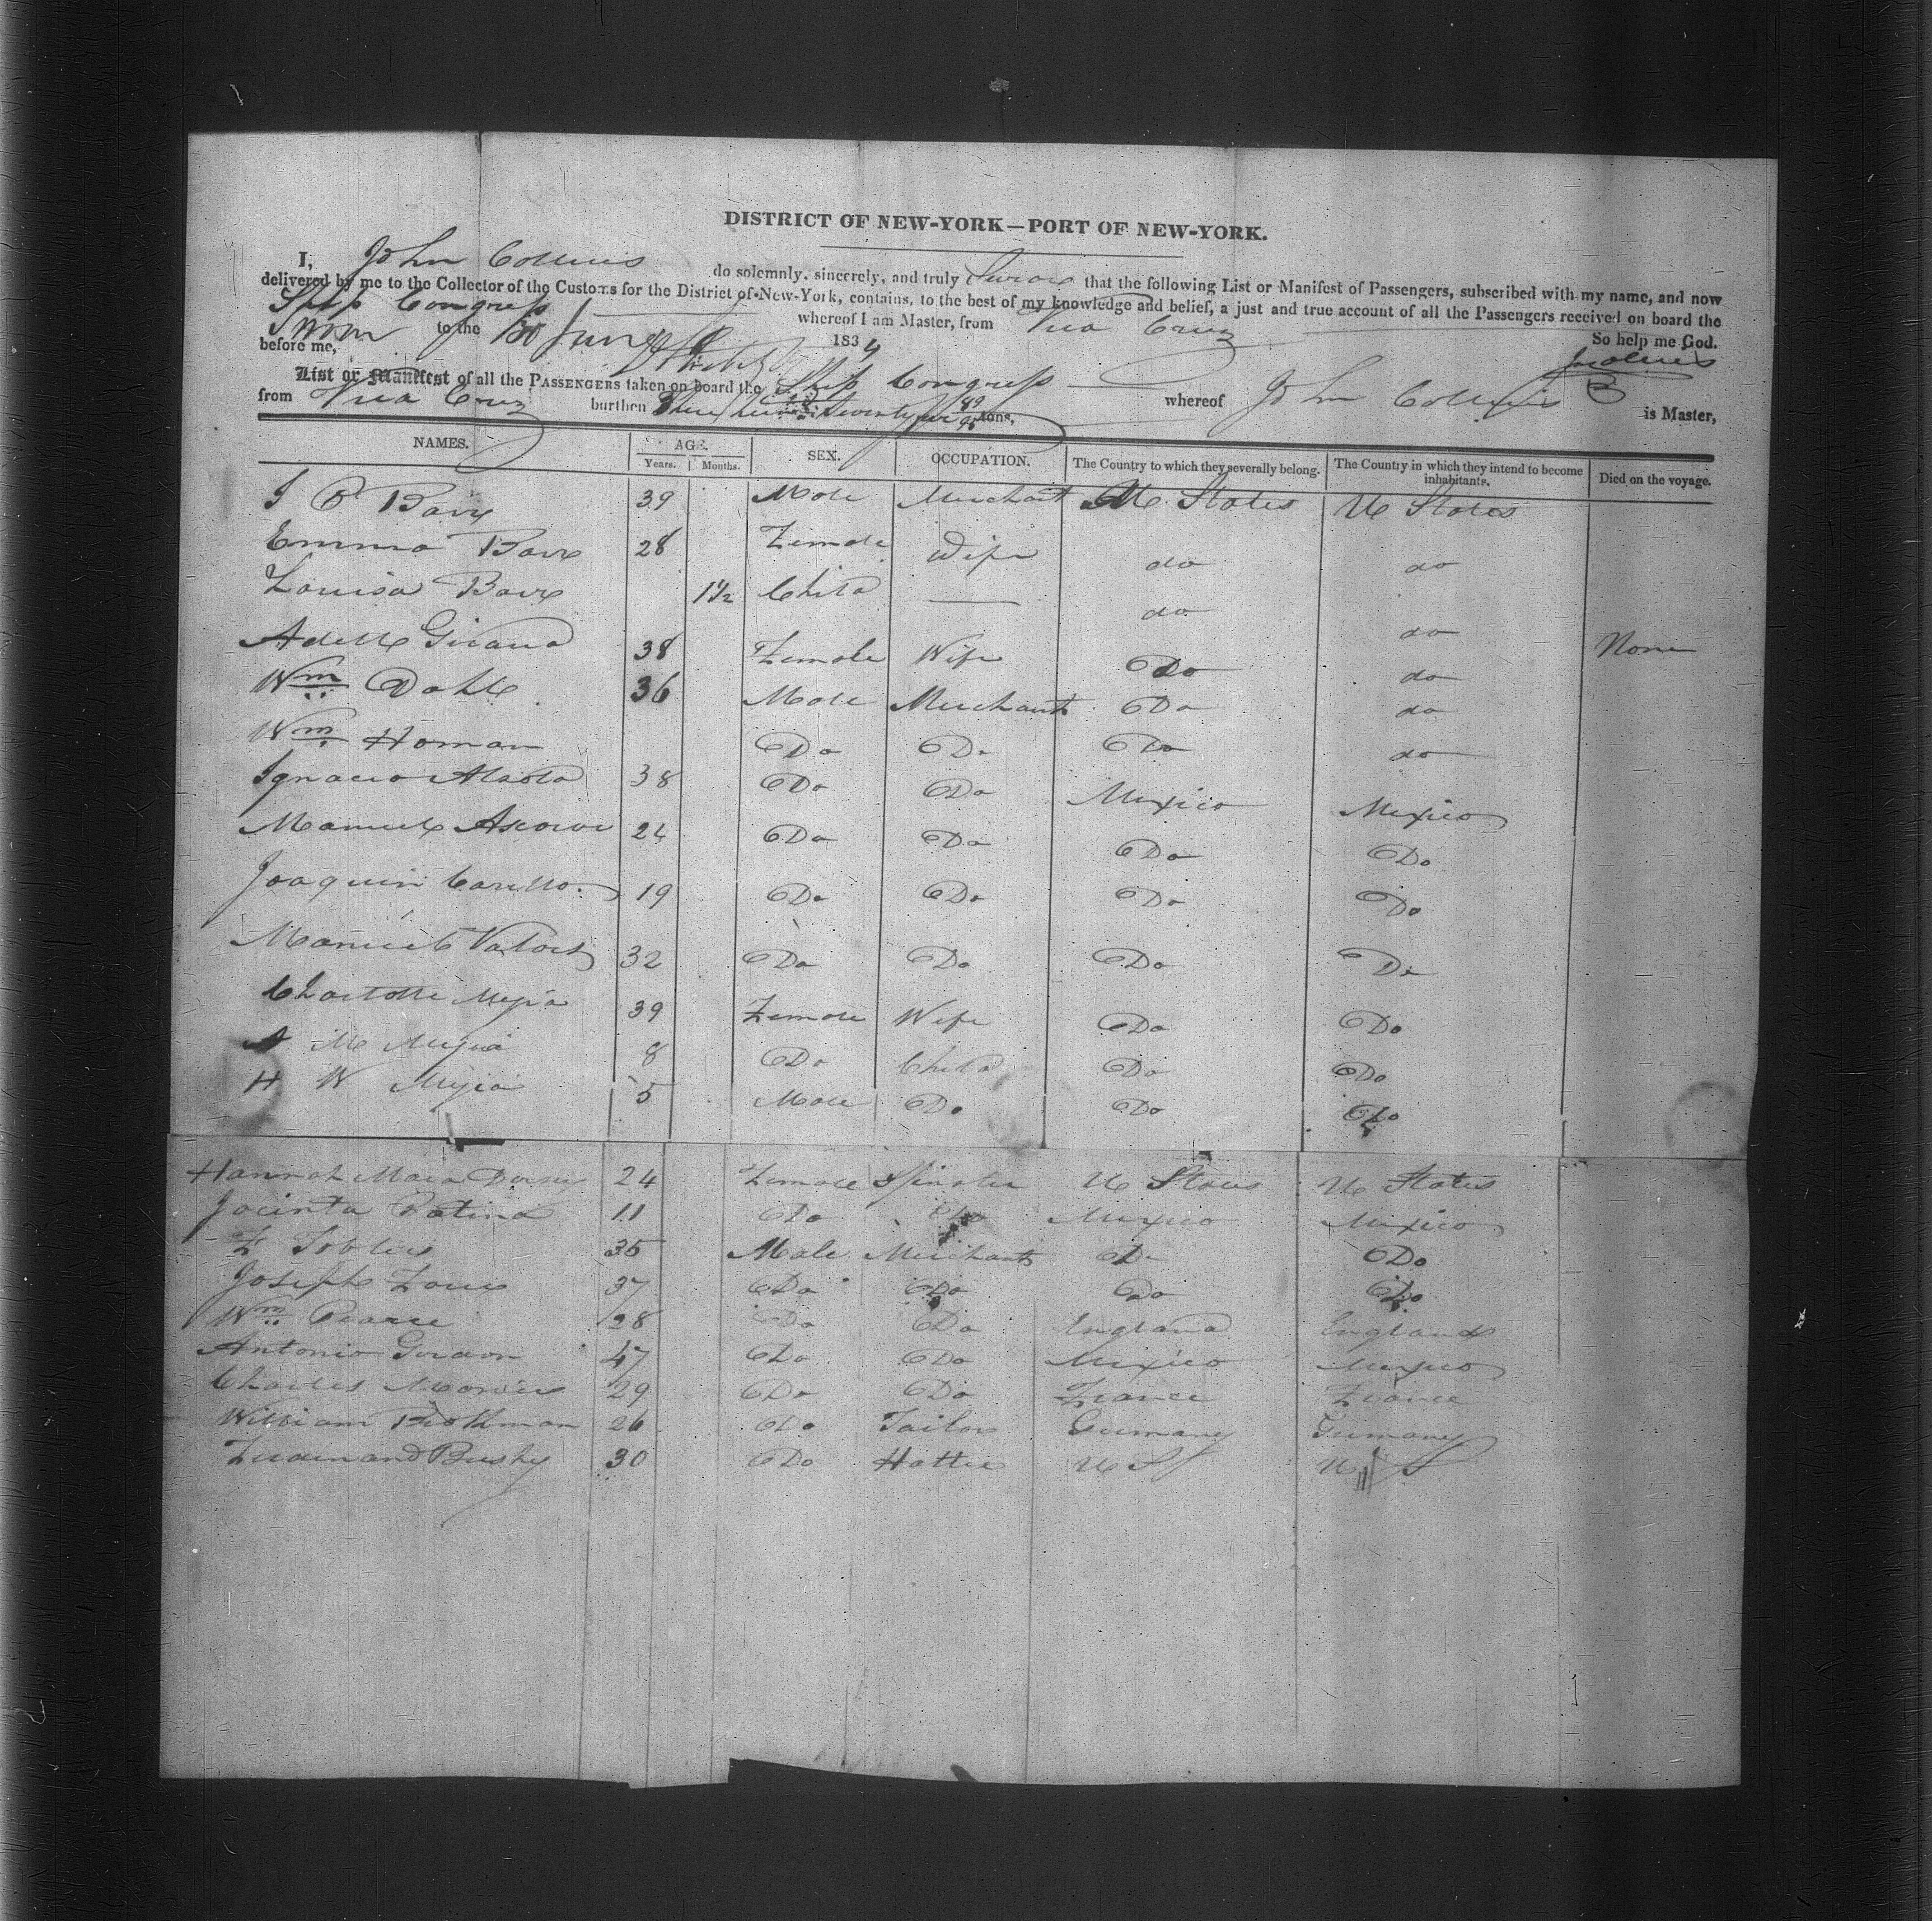 DISTRICT OF NEW-YORK—PORT OF NEW-YORK.
I, John Collins do solemnly, sincerely, and truly Swear that the following List or Manifest of Passengers, subscribed with my name, and now
delivered by me to the Collector of the Customs for the District of New-York, contains, to the best of my knowledge and belief, a just and true account of all the Passengers received on board the
Ship Congress whereof I am Master, from Vera Cruz
Sworn to the 30 June 1834 So help me God.
before me, J Collins
List or Manifest of all the PASSENGERS taken on board the Ship Congress whereof John Collins is Master,
from Vera Cruz burthen Three hund twenty 49/95 tons,
NAMES. AGE. SEX. OCCUPATION. The Country to which they severally belong. The Country in which they intend to become inhabitants. Died on the voyage.
Years. Months.
39 Male Merchant U States U States
Emma 28 Female Wife do do
Louisa 1½ Child — do do
Adelle Giraud 38 Female Wife Do do None
Wm Dahl 36 Male Merchant Do do
Wm Homan Do Do Do do
Ignacio 38 Do Do Mexico Mexico
Manuel 24 Do Do Do Do
Joaquin Carillo 19 Do Do Do Do
Manuel 32 Do Do Do Do
Charlotte Mejia 39 Female Wife Do Do
A M Mejia 8 Do Child Do Do
H W Mejia 5 Male Do Do Do
Hannah Maria 24 Female Spinster U States U States
Jacinta Patino 11 Do Do Mexico Mexico
35 Male Merchant Do Do
Joseph 37 Do Do Do Do
Wm Pearce 28 Do Do England England
Antonio 47 Do Do Mexico Mexico
Charles 29 Do Do France France
William 26 Do Tailor Germany Germany
Ferdinand Bushy 30 Do Hatter U S U S